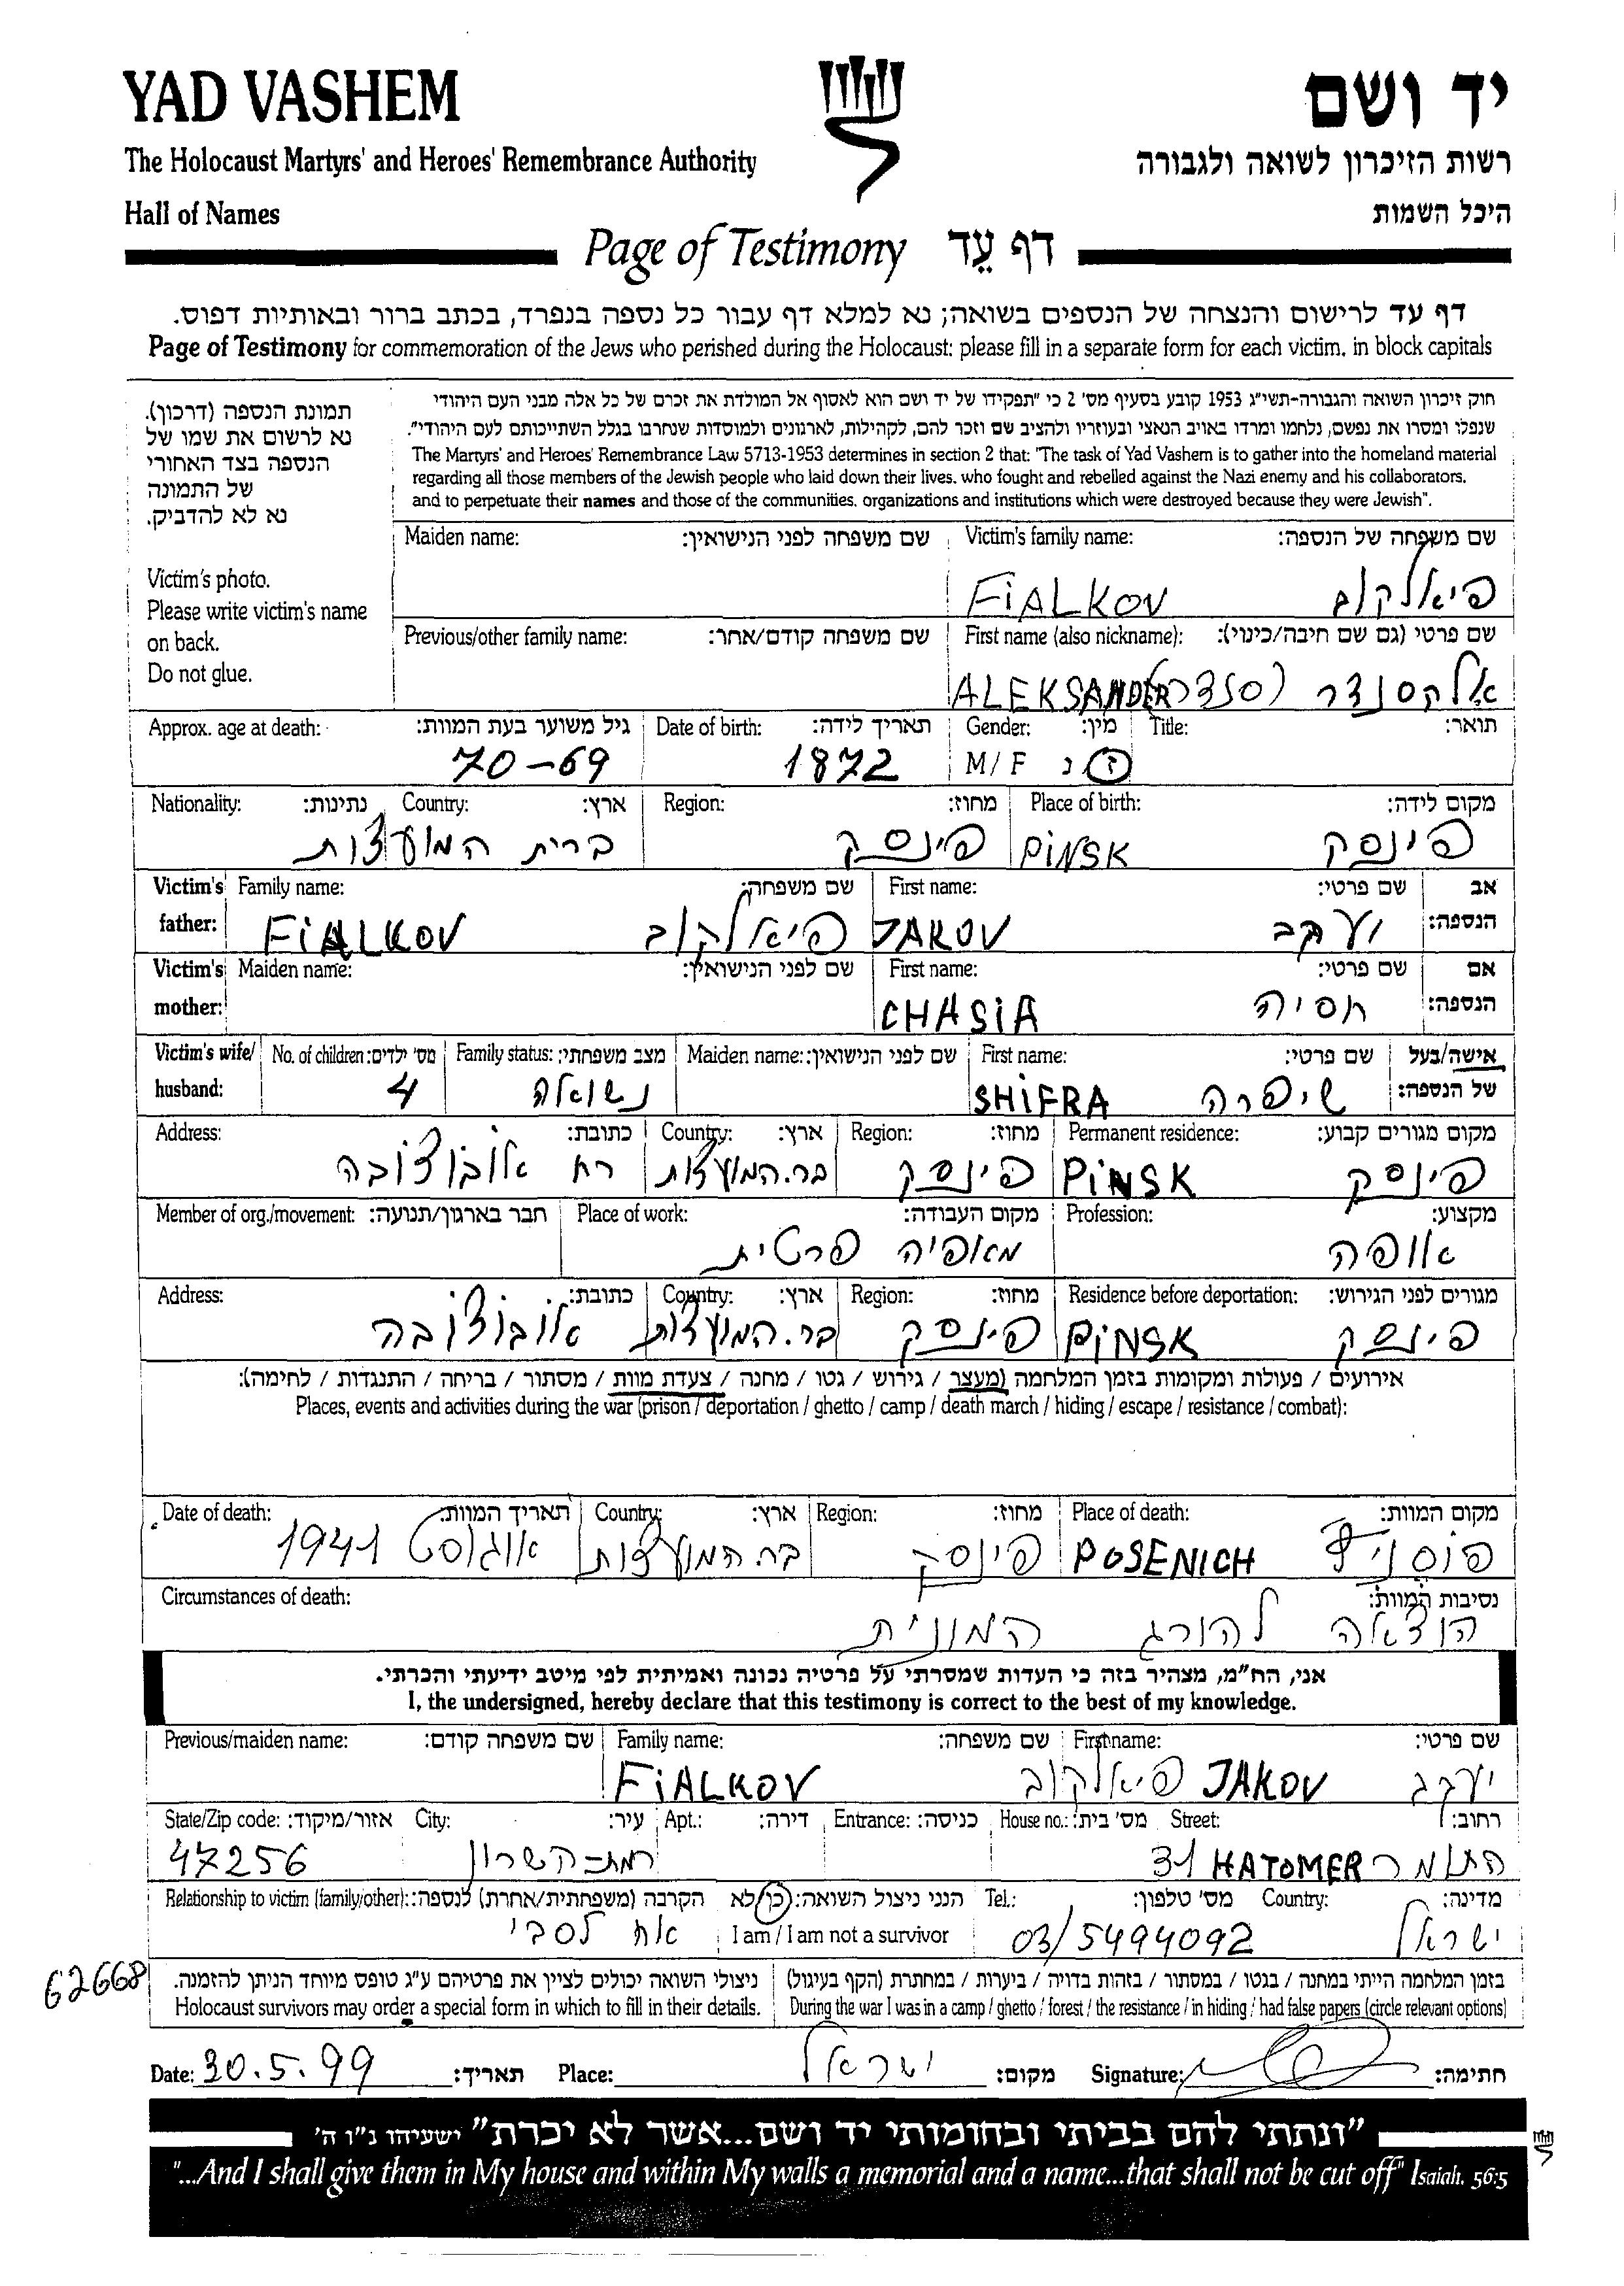 YAD VASHEM יד ושם
The Holocaust Martyrs' and Heroes' Remembrance Authority רשות הזיכרון לשואה ולגבורה
Hall of Names היכל השמות
Page of Testimony דף עֵד
דף עד לרישום והנצחה של הנספים בשואה; נא למלא דף עבור כל נספה בנפרד, בכתב ברור ובאותיות דפוס.
Page of Testimony for commemoration of the Jews who perished during the Holocaust: please fill in a separate form for each victim, in block capitals
תמונת הנספה (דרכון).
נא לרשום את שמו של
הנספה בצד האחורי
של התמונה
נא לא להדביק.
Victim's photo.
Please write victim's name
on back.
Do not glue.
חוק זיכרון השואה והגבורה-תשי"ג 1953 קובע בסעיף מס' 2 כי "תפקידו של יד ושם הוא לאסוף אל המולדת את זכרם של כל אלה מבני העם היהודי
שנפלו ומסרו את נפשם, נלחמו ומרדו באויב הנאצי ובעוזריו ולהציב שם וזכר להם, לקהילות, לארגונים ולמוסדות שנחרבו בגלל השתייכותם לעם היהודי".
The Martyrs' and Heroes' Remembrance Law 5713-1953 determines in section 2 that: "The task of Yad Vashem is to gather into the homeland material
regarding all those members of the Jewish people who laid down their lives, who fought and rebelled against the Nazi enemy and his collaborators,
and to perpetuate their names and those of the communities, organizations and institutions which were destroyed because they were Jewish".
Maiden name: שם משפחה לפני הנישואין: Victim's family name: שם משפחה של הנספה:
FiALKOV פיאלקוב
Previous/other family name: שם משפחה קודם/אחר: First name (also nickname): שם פרטי (גם שם חיבה/כינוי):
ALEKSANDER אלקסנדר (סנדר)
Approx. age at death: גיל משוער בעת המוות: Date of birth: תאריך לידה: Gender: מין: Title: תואר:
70-69 1872 M/F ז נ
Nationality: נתינות: Country: ארץ: Region: מחוז: Place of birth: מקום לידה:
ברית המועצות פינסק PiNSK פינסק
Victim's father: Family name: שם משפחה: First name: שם פרטי: אב הנספה:
FiALKOV פיאלקוב JAKOV יעקב
Victim's mother: Maiden name: שם לפני הנישואין: First name: שם פרטי: אם הנספה:
CHASiA חסיה
Victim's wife/ husband: No. of children: מס' ילדים: Family status: מצב משפחתי: Maiden name: שם לפני הנישואין: First name: שם פרטי: אישה/בעל של הנספה:
4 נשואה SHiFRA שיפרה
Address: כתובת: Country: ארץ: Region: מחוז: Permanent residence: מקום מגורים קבוע:
רח בר.המועצות פינסק PiNSK פינסק
Member of org./movement: חבר בארגון/תנועה: Place of work: מקום העבודה: Profession: מקצוע:
מאפיה פרטית אופה
Address: כתובת: Country: ארץ: Region: מחוז: Residence before deportation: מגורים לפני הגירוש:
בר.המועצות פינסק PiNSK פינסק
אירועים / פעולות ומקומות בזמן המלחמה (מעצר / גירוש / גטו / מחנה / צעדת מוות / מסתור / בריחה / התנגדות / לחימה):
Places, events and activities during the war (prison / deportation / ghetto / camp / death march / hiding / escape / resistance / combat):
Date of death: תאריך המוות: Country: ארץ: Region: מחוז: Place of death: מקום המוות:
אוגוסט 1941 בר. המועצות פינסק POSENICH
Circumstances of death: נסיבות המוות:
הוצאה להורג המונית
אני, הח"מ, מצהיר בזה כי העדות שמסרתי על פרטיה נכונה ואמיתית לפי מיטב ידיעתי והכרתי.
I, the undersigned, hereby declare that this testimony is correct to the best of my knowledge.
Previous/maiden name: שם משפחה קודם: Family name: שם משפחה: First name: שם פרטי:
FiALKOV פיאלקוב JAKOV יעקב
State/Zip code: אזור/מיקוד: City: עיר: Apt.: דירה: Entrance: כניסה: House no.: מס' בית: Street: רחוב:
47256 רמת-השרון 31 HATOMER התומר
Relationship to victim (family/other): הקרבה (משפחתית/אחרת) לנספה: הנני ניצול השואה: כן/לא Tel.: מס' טלפון: Country: מדינה:
אח לסבי I am / I am not a survivor 03/5494092 ישראל
62668
ניצולי השואה יכולים לציין את פרטיהם ע"ג טופס מיוחד הניתן להזמנה. בזמן המלחמה הייתי במחנה / בגטו / במסתור / בזהות בדויה / ביערות / במחתרת (הקף בעיגול)
Holocaust survivors may order a special form in which to fill in their details. During the war I was in a camp / ghetto / forest / the resistance / in hiding / had false papers (circle relevant options)
Date: 30.5.99 תאריך: Place: ישראל מקום: Signature: חתימה:
"ונתתי להם בביתי ובחומותי יד ושם...אשר לא יכרת" ישעיהו נ"ו ה'
"...And I shall give them in My house and within My walls a memorial and a name...that shall not be cut off" Isaiah, 56:5